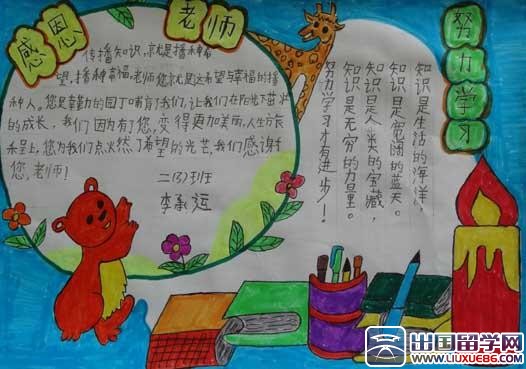 感恩
老师
传播知识,就是播种希
望,播种幸福,老师您就是这希望与幸福的播
种人。您是辛勤的园丁哺育我们,让我们在阳光下茁壮
的成长,我们因为有了您,变得更加美丽,人生旅
程上,您为我们点燃了希望的光芒,我们感谢
您,老师!
二(3)班
李 运
努力学习
知识是生活的海洋,
知识是宽阔的蓝天。
知识是人类的宝藏,
知识是无穷的力量。
努力学习才有进步!
出国留学网
www.liuxue86.com